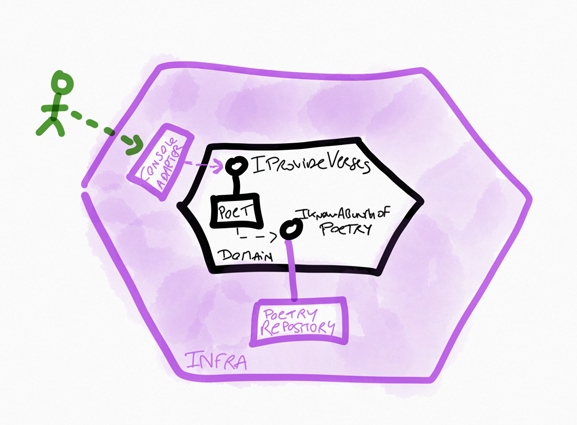 CONSOLE
ADAPTOR
IPROVIDEVERSES
POET
IKNOWABUNCHOF
POETRY
DOMAIN
POETRY
REPOSITORY
INFRA